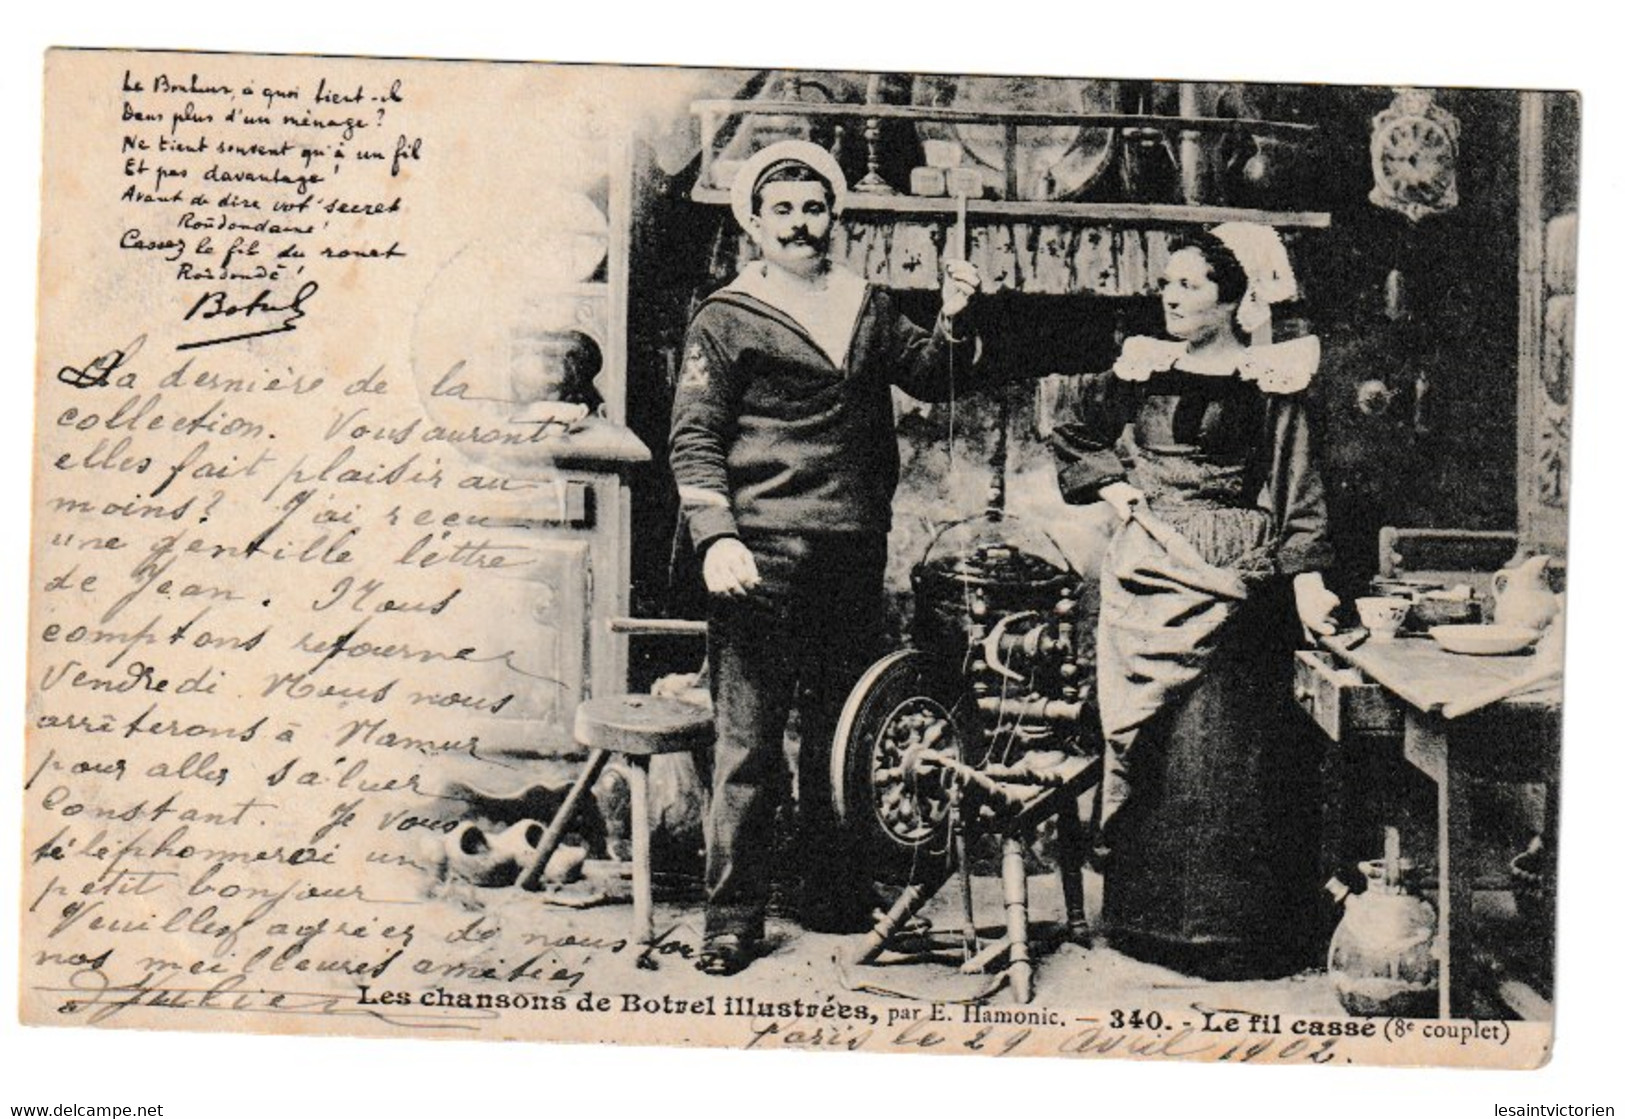 Le Bonheur, à quoi tient-il
Dans plus d'un ménage ?
Ne tient souvent qu'à un fil
Et pas davantage !
Avant de dire vot' secret
Roudondaine !
Cassez le fil du rouet
Roudondé !
Botrel
La dernière de la
collection. Vous auront
elles fait plaisir au
moins ? J'ai reçu
une gentille lettre
de Jean. Nous
comptons retourner
Vendredi. Nous nous
arrêterons à Namur
pour aller saluer
Constant. Je vous
téléphonnerai un
petit bonjour
Veuillez agréer de nous tous
nos meilleures amitiés
Julien
Les chansons de Botrel illustrées, par E. Hamonic. — 340. - Le fil cassé (8e couplet)
Paris le 29 Avril 1902.
delcampe.net
lesaintvictorien